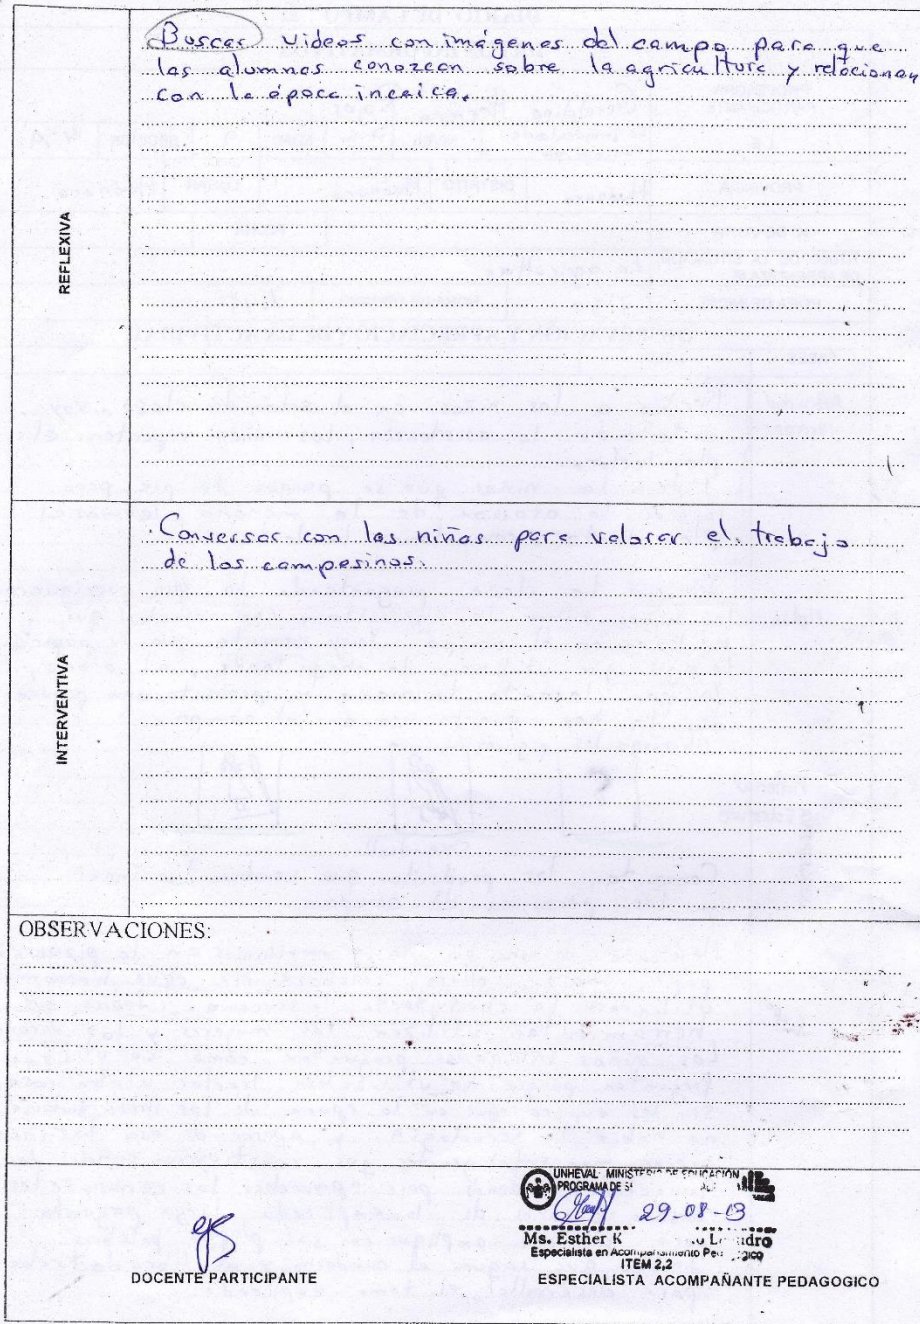 Buscar videos con imágenes del campo para que
los alumnos conozcan sobre la agricultura y relacionen
con la época incaica.
REFLEXIVA
. Conversar con los niños para valorar el trabajo
de los campesinos.
INTERVENTIVA
OBSERVACIONES:
UNHEVAL - MINISTERIO DE EDUCACIÓN
PROGRAMA DE
29-08-13
Ms. Esther
Especialista en Acompañamiento Pedagógico
ITEM 2,2
DOCENTE PARTICIPANTE
ESPECIALISTA ACOMPAÑANTE PEDAGOGICO